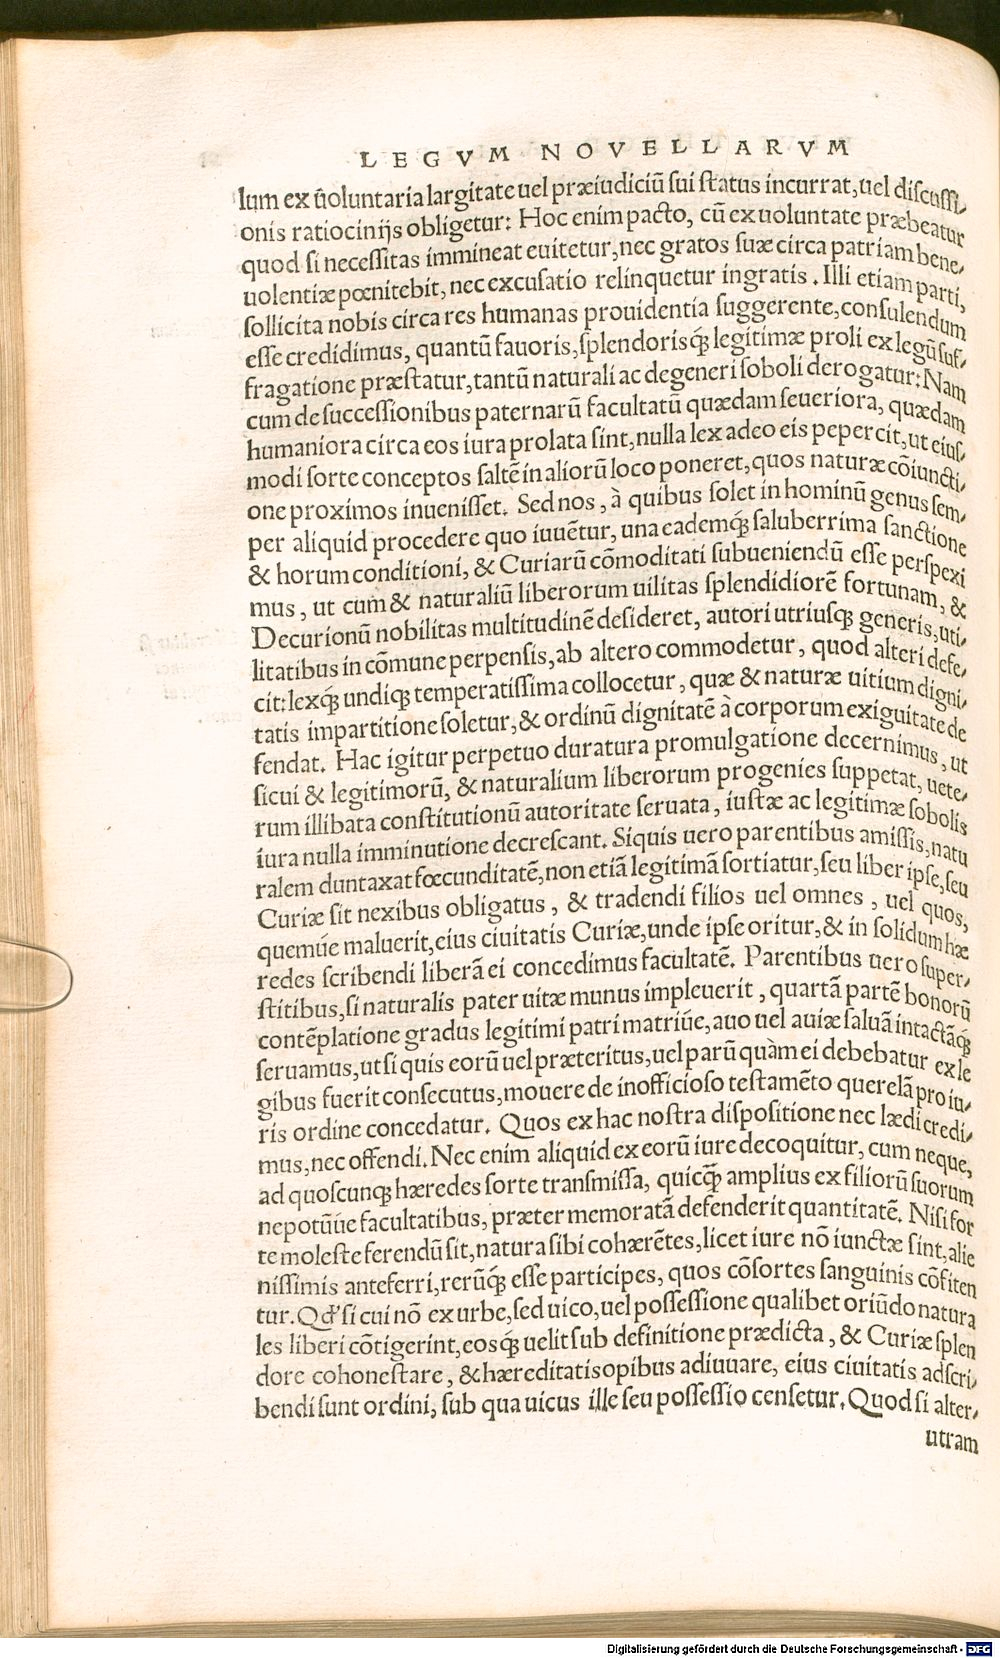 LEGVM NOVELLARVM
lum ex uoluntaria largitate uel præiudiciū sui status incurrat, uel discussi-
onis ratiocinijs obligetur: Hoc enim pacto, cū ex uoluntate præbeatur
quod si necessitas immineat euitetur, nec gratos suæ circa patriam bene-
uolentiæ pœnitebit, nec excusatio relinquetur ingratis. Illi etiam parti,
sollicita nobis circa res humanas prouidentia suggerente, consulendum
esse credidimus, quantū fauoris, splendorisq́; legitimæ proli ex legū suf-
fragatione præstatur, tantū naturali ac degeneri soboli derogatur: Nam
cum de successionibus paternarū facultatū quædam seueriora, quædam
humaniora circa eos iura prolata sint, nulla lex adeo eis pepercit, ut eius-
modi sorte conceptos saltē in aliorū loco poneret, quos naturæ cōiuncti-
one proximos inuenisset. Sed nos, à quibus solet in hominū genus sem-
per aliquid procedere quo iuuētur, una eademq́; saluberrima sanctione
& horum conditioni, & Curiarū cōmoditati subueniendū esse perspexi
mus, ut cum & naturaliū liberorum uilitas splendidiorē fortunam, &
Decurionū nobilitas multitudinē desideret, autori utriusq; generis, uti-
litatibus in cōmune perpensis, ab altero commodetur, quod alteri defe-
cit: lexq́; undiq; temperatissima collocetur, quæ & naturæ uitium digni-
tatis impartitione soletur, & ordinū dignitatē à corporum exiguitate de
fendat. Hac igitur perpetuo duratura promulgatione decernimus, ut
sicui & legitimorū, & naturalium liberorum progenies suppetat, uete-
rum illibata constitutionū autoritate seruata, iustæ ac legitimæ sobolis
iura nulla imminutione decrescant. Siquis uero parentibus amissis, natu
ralem duntaxat fœcunditatē, non etiā legitimā sortiatur, seu liber ipse, seu
Curiæ sit nexibus obligatus, & tradendi filios uel omnes, uel quos,
quemúe maluerit, eius ciuitatis Curiæ, unde ipse oritur, & in solidum hæ
redes scribendi liberā ei concedimus facultatē. Parentibus uero super-
stitibus, si naturalis pater uitæ munus impleuerit, quartā partē bonorū
contēplatione gradus legitimi patri matriúe, auo uel auiæ saluā intactāq́;
seruamus, ut si quis eorū uel præteritus, uel parū quàm ei debebatur ex le
gibus fuerit consecutus, mouere de inofficioso testamēto querelā pro iu-
ris ordine concedatur. Quos ex hac nostra dispositione nec lædi credi-
mus, nec offendi. Nec enim aliquid ex eorū iure decoquitur, cum neque,
ad quoscunq; hæredes sorte transmissa, quicq̃ amplius ex filiorū suorum
nepotūúe facultatibus, præter memoratā defenderit quantitatē. Nisi for
te moleste ferendū sit, natura sibi cohærētes, licet iure nō iunctæ sint, alie
nissimis anteferri, rerūq́; esse participes, quos cōsortes sanguinis cōfiten
tur. Qd' si cui nō ex urbe, sed uico, uel possessione qualibet oriūdo natura
les liberi cōtigerint, eosq́; uelit sub definitione prædicta, & Curiæ splen
dore cohonestare, & hæreditatis opibus adiuuare, eius ciuitatis adscri-
bendi sunt ordini, sub qua uicus ille seu possessio censetur. Quod si alter-
utram
Digitalisierung gefördert durch die Deutsche Forschungsgemeinschaft - DFG